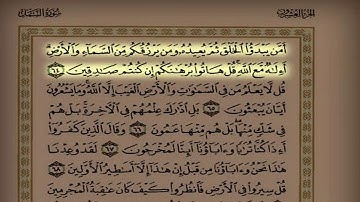 الجزء العشرون سورة النمل
أمن يبدؤا الخلق ثم يعيده ومن يرزقكم من السماء والأرض
أءله مع الله قل هاتوا برهنكم إن كنتم صادقين ٦٤
قل لا يعلم من في السموات والأرض الغيب إلا الله وما يشعرون
أيان يبعثون ٦٥ بل ادرك علمهم في الآخرة بل هم
في شك منها بل هم منها عمون ٦٦ وقال الذين كفروا
أءذا كنا تربا وءاباؤنا أئنا لمخرجون ٦٧ لقد وعدنا
هذا نحن وءاباؤنا من قبل إن هذا إلا أسطير الأولين ٦٨
قل سيروا في الأرض فانظروا كيف كان عقبة المجرمين